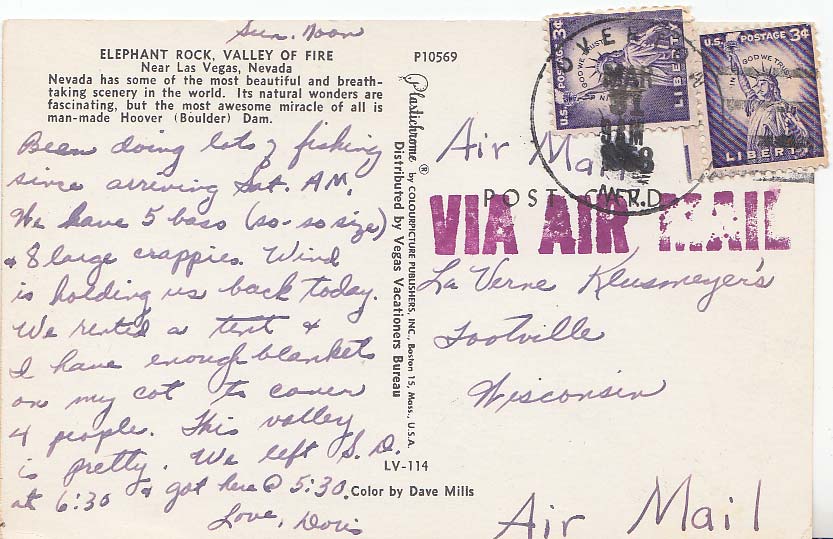 Sun. Noon
ELEPHANT ROCK, VALLEY OF FIRE
Near Las Vegas, Nevada
Nevada has some of the most beautiful and breath-
taking scenery in the world. Its natural wonders are
fascinating, but the most awesome miracle of all is
man-made Hoover (Boulder) Dam.
Been doing lots of fishing
since arriving Sat. AM.
We have 5 bass (so-so size)
& 8 large crappies. Wind
is holding us back today.
We rented a tent &
I have enough blankets
on my cot to cover
4 people. This valley
is pretty. We left S.D.
at 6:30 & got here @ 5:30.
Love, Doris
P10569
Plastichrome ® by COLOURPICTURE PUBLISHERS, INC., Boston 15, Mass., U.S.A.
Distributed by Vegas Vacationers Bureau
LV-114
Color by Dave Mills
U.S. POSTAGE 3¢
IN GOD WE TRUST
LIBERTY
U.S. POSTAGE 3¢
IN GOD WE TRUST
LIBERTY
OVER
MAR
Air Mail
POST CARD
VIA AIR MAIL
La Verne Klusmeyer's
Footville
Wisconsin
Air Mail